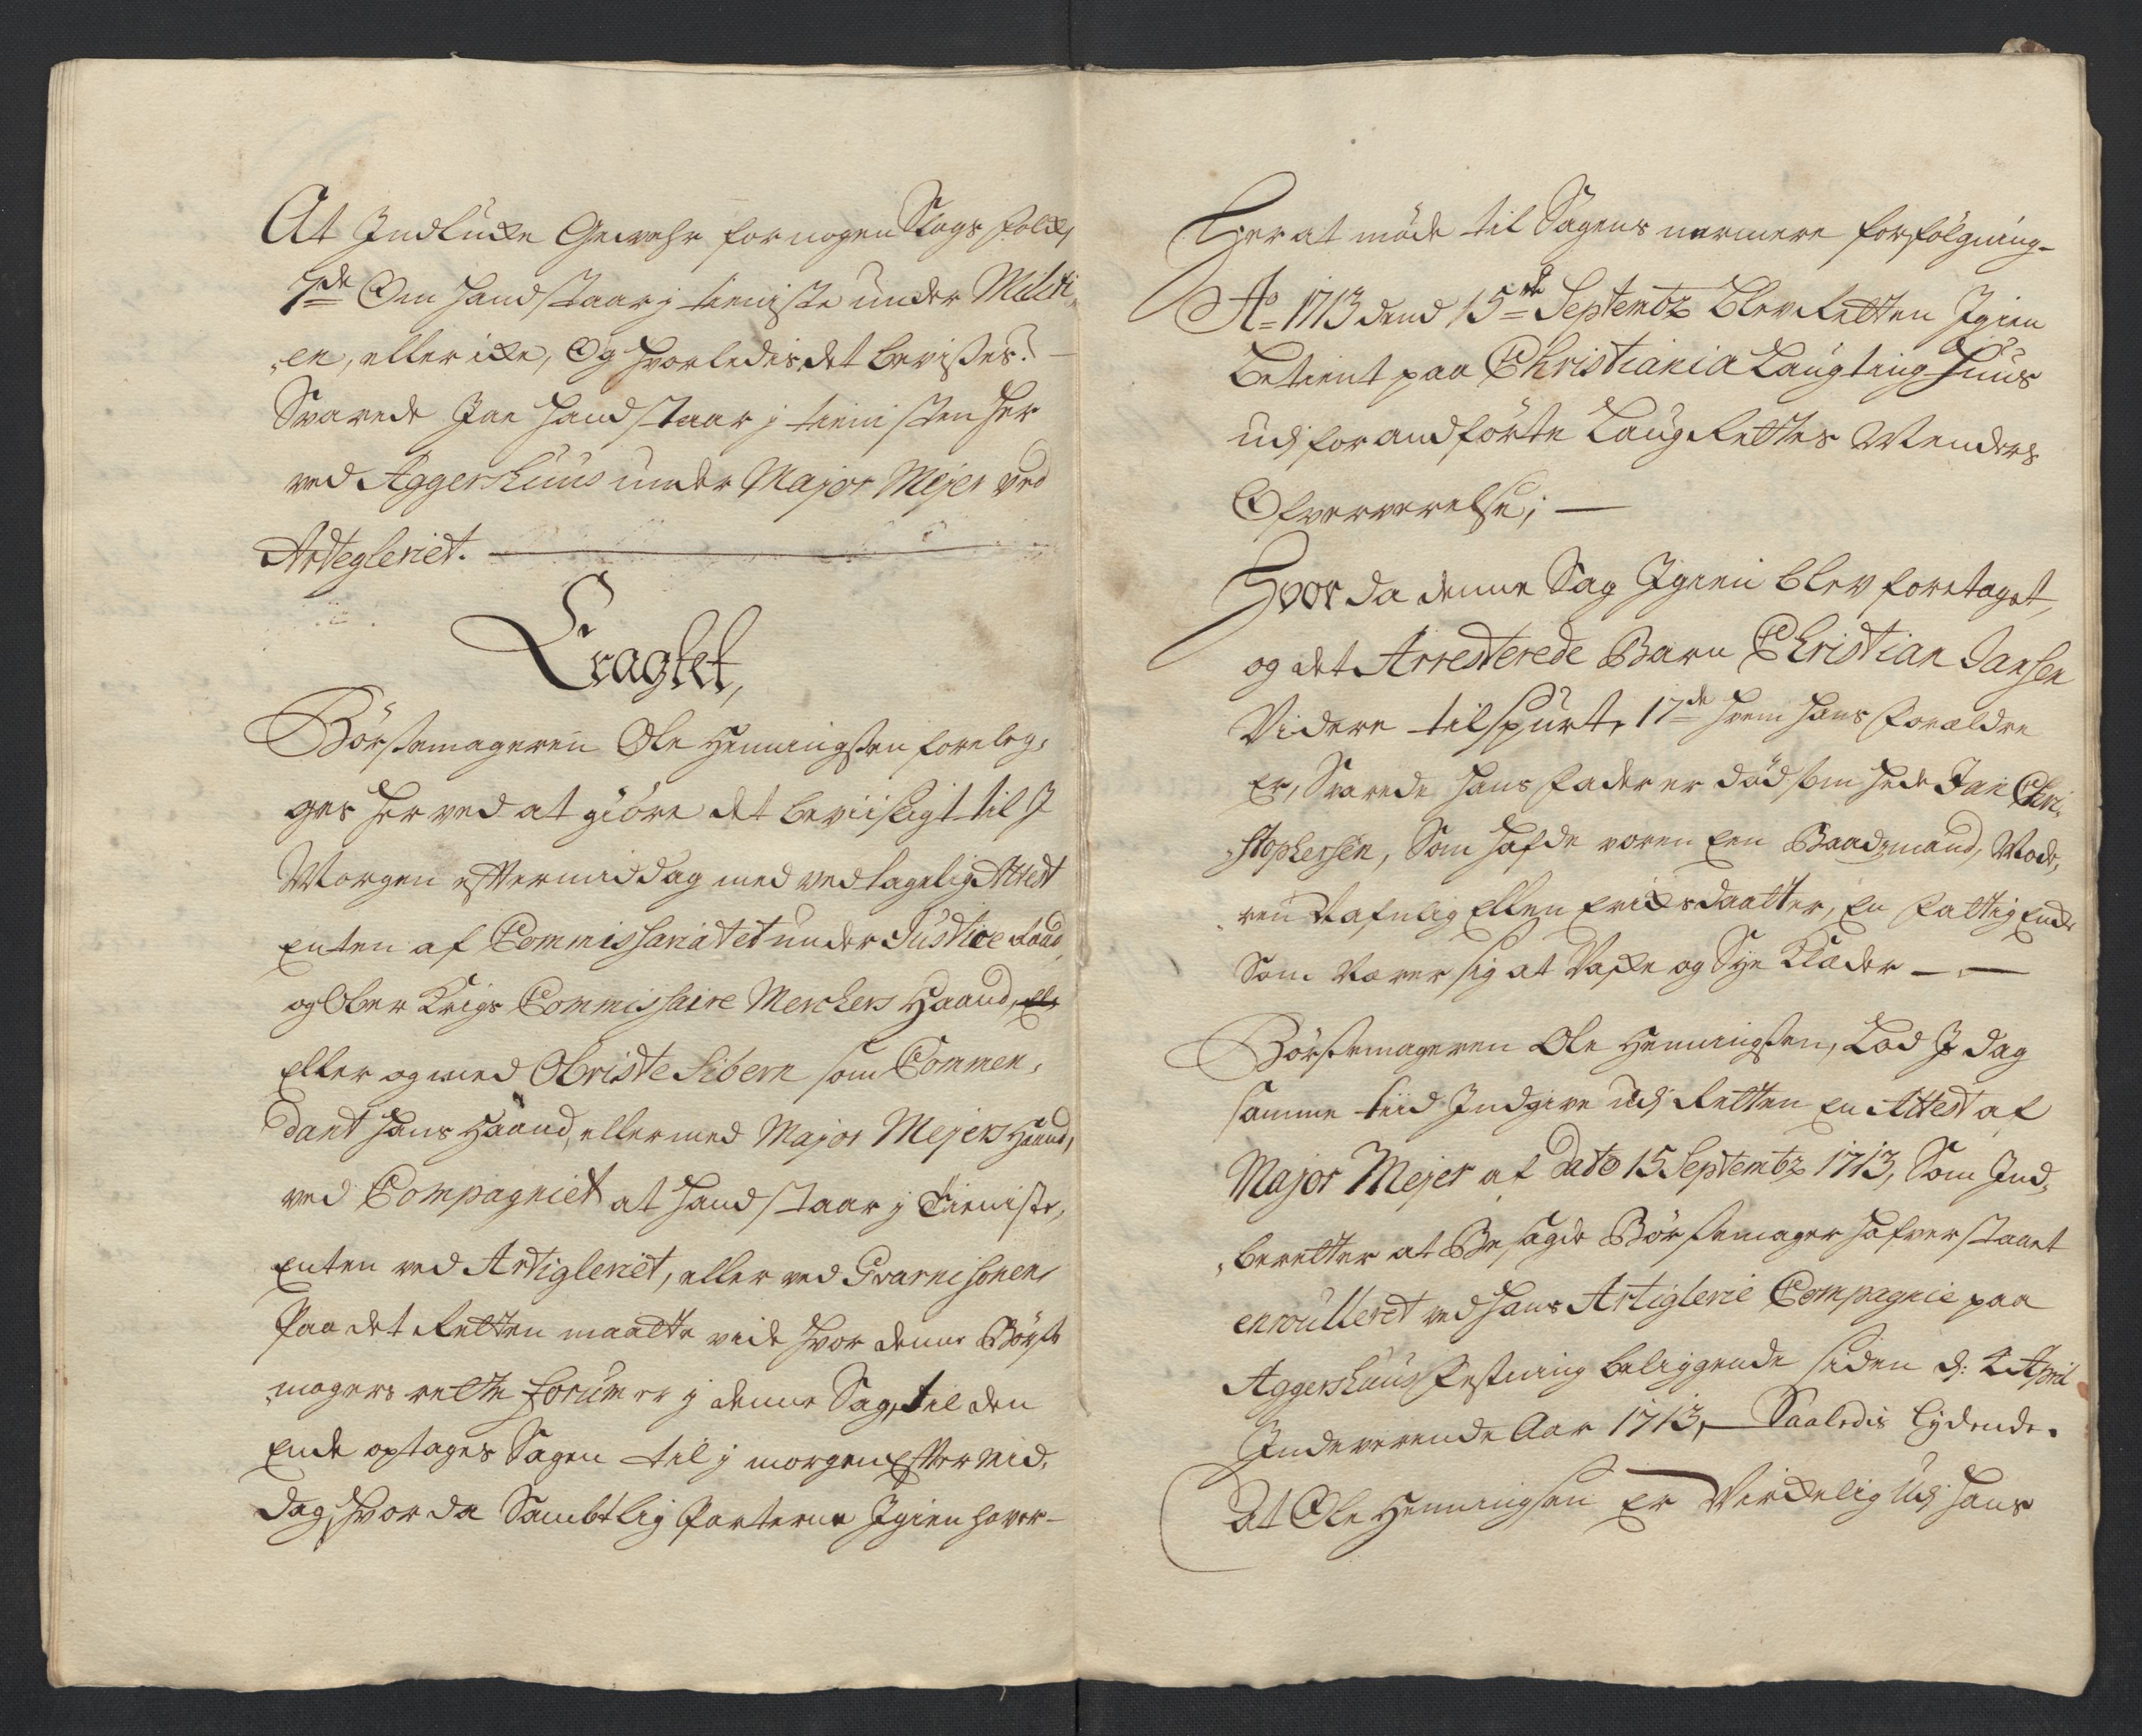 At Indlucke Gewehr for nogen Slags folck,
7de Om hand staar j tieniste under Militi
„en, eller icke, Og hvorledis det bevises?
Svarede Jae hand staar j tienisten her
ved Aggershuus under Major Mejer ved
Artegleriet.
Eragtet,
Börstemageren Ole Henningsen foreleg„
ges her ved at giöre det beviisligt til J
Morgen efftermiddag med vedtagelig Attest
Enten af Commissariatet under Justice Raad
og Ober Krigs Commissaire Merckers Haand,
Eller og med Obriste Sibern som Commen„
dant hans Haand, eller med Major Mejers Haand,
ved Compagniet at hand staar j Tieniste,
Enten ved Artigleriet, eller ved Gvarnisonen,
Paa det Retten maatte vide hvor denne Börste
„magers rette forum er j denne Sag, til den
Ende optages Sagen til j morgen Efftermid„
dag, hvor da Sambtlig Parterne Igien haver
Her at möde til Sagens nermere forfölgning
Ao 1713 dend 15de Septembr Blev Retten Igien
Betient paa Christiania Laugting Huus
udj forandförte Laug Rettes Menders
Ofververelse;
Hvor da denne Sag Igien blev foretaget,
og det Arresterede Barn Christian Jansen
Videre tilspurt, 17de hvem hans Forældre
Er, Svarede hans Fader er död som hede Jan Chri„
„stophersen, Som hafde voren Een Baadzmand, Mode„
„ren Nafnlig Ellen Ericksdaatter, En fattig Encke
Som Nærer sig at Vaske og Sye Klæder
Börstemageren Ole Henningsen, Lod J dag
samme tiid Indgive udj Retten En Attest af
Major Mejer af Dato 15 Septembr 1713, Som Ind„
„beretter at Besagde Börstemager hafver staaet
enroulleret ved hans Artiglerie Compagnie paa
Aggershuus Festning beliggende siden d: 4 April
Indeverende Aar 1713, Saaledis Lydende.
At Ole Henningsen Er Virckelig Udj hans